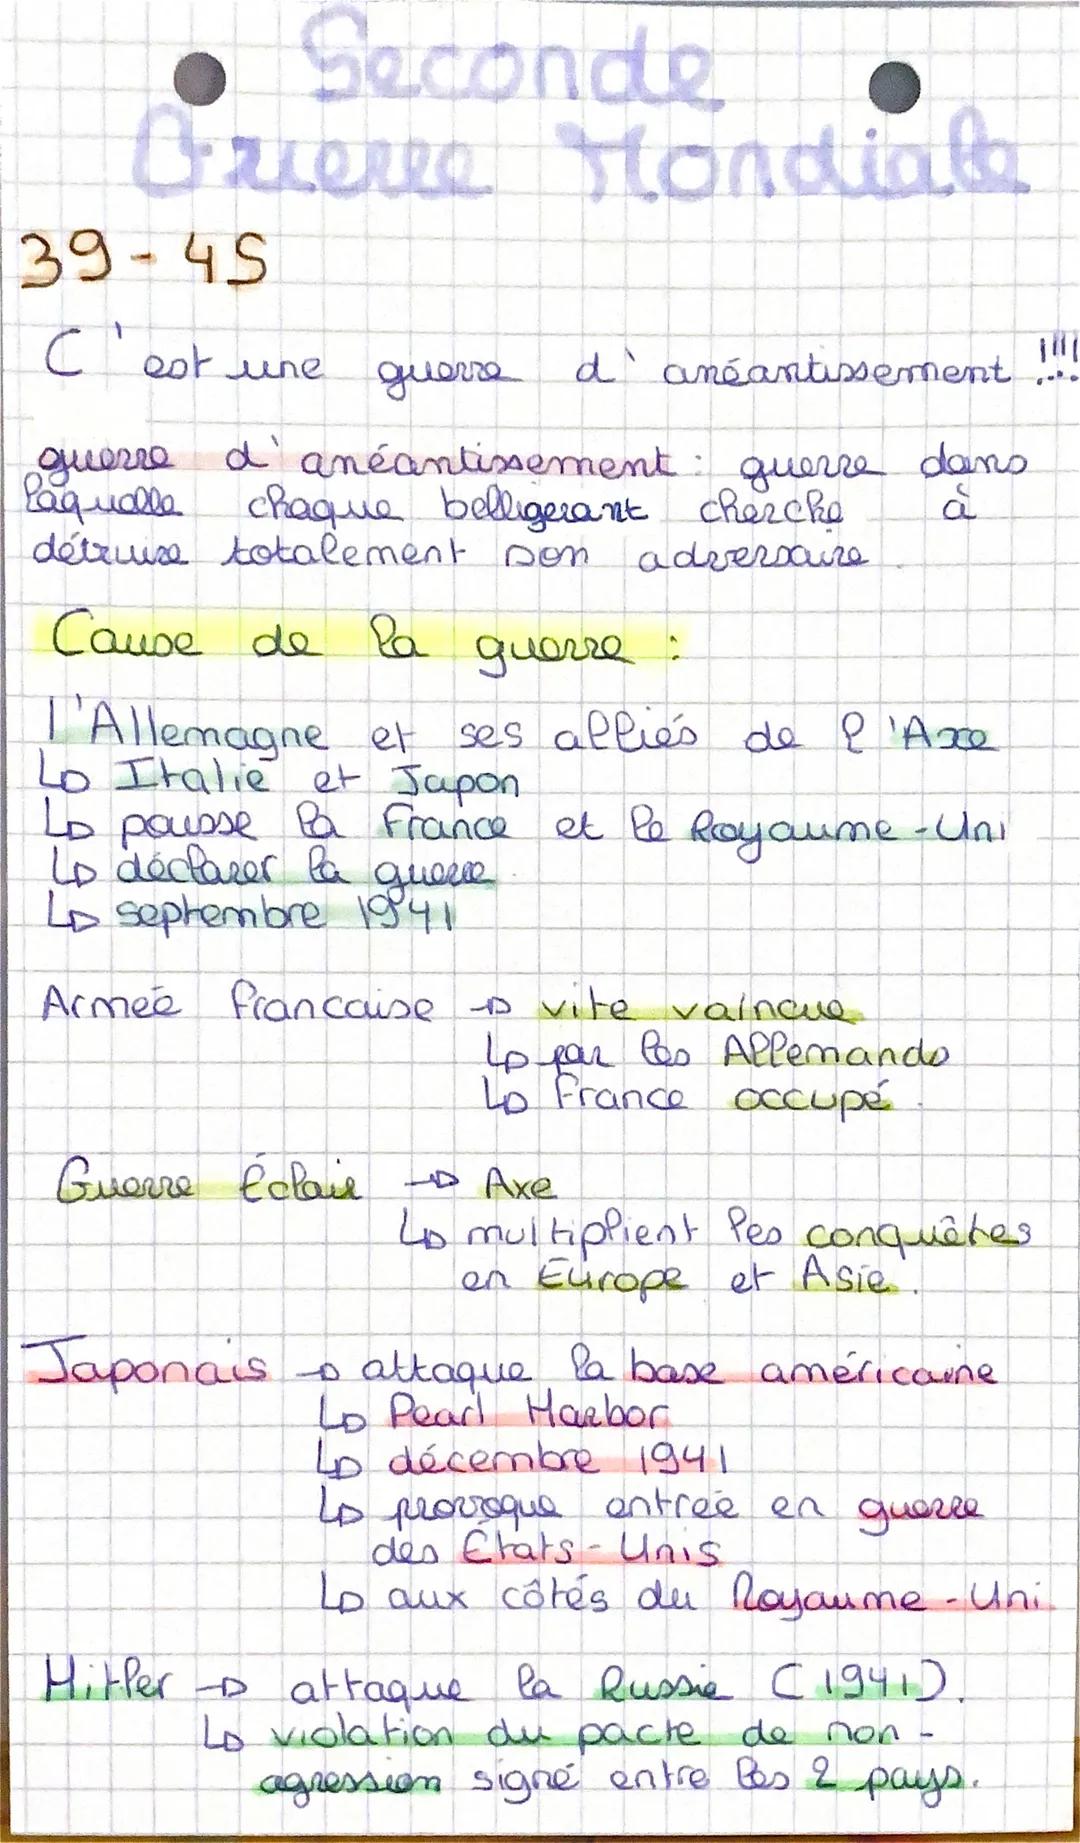 Seconde
Guerre Mondiale
39-45
C'est une guerre d'anéantissement !!!!
guerre d'anéantissement : guerre dans
laquelle chaque belligerant cherche à
détruise totalement son adversaire.
Cause de la guerre :
L'Allemagne et ses alliés de l'Axe
↳ Italie et Japon
↳ pousse la France et le Royaume-Uni
↳ déclarer la guerre
↳ septembre 1941
Armée francaise → vite vaincue
↳ par les Allemands
↳ France occupé.
Guerre Éclair → Axe
↳ multiplient les conquêtes
en Europe et Asie.
Japonais → attaque la base américaine
↳ Pearl Harbor
↳ décembre 1941
↳ provoque entrée en guerre
des États-Unis
↳ aux côtés du Royaume-Uni
Hitler → attaque la Russie (1941).
↳ violation du pacte de non-
agression signé entre les 2 pays.